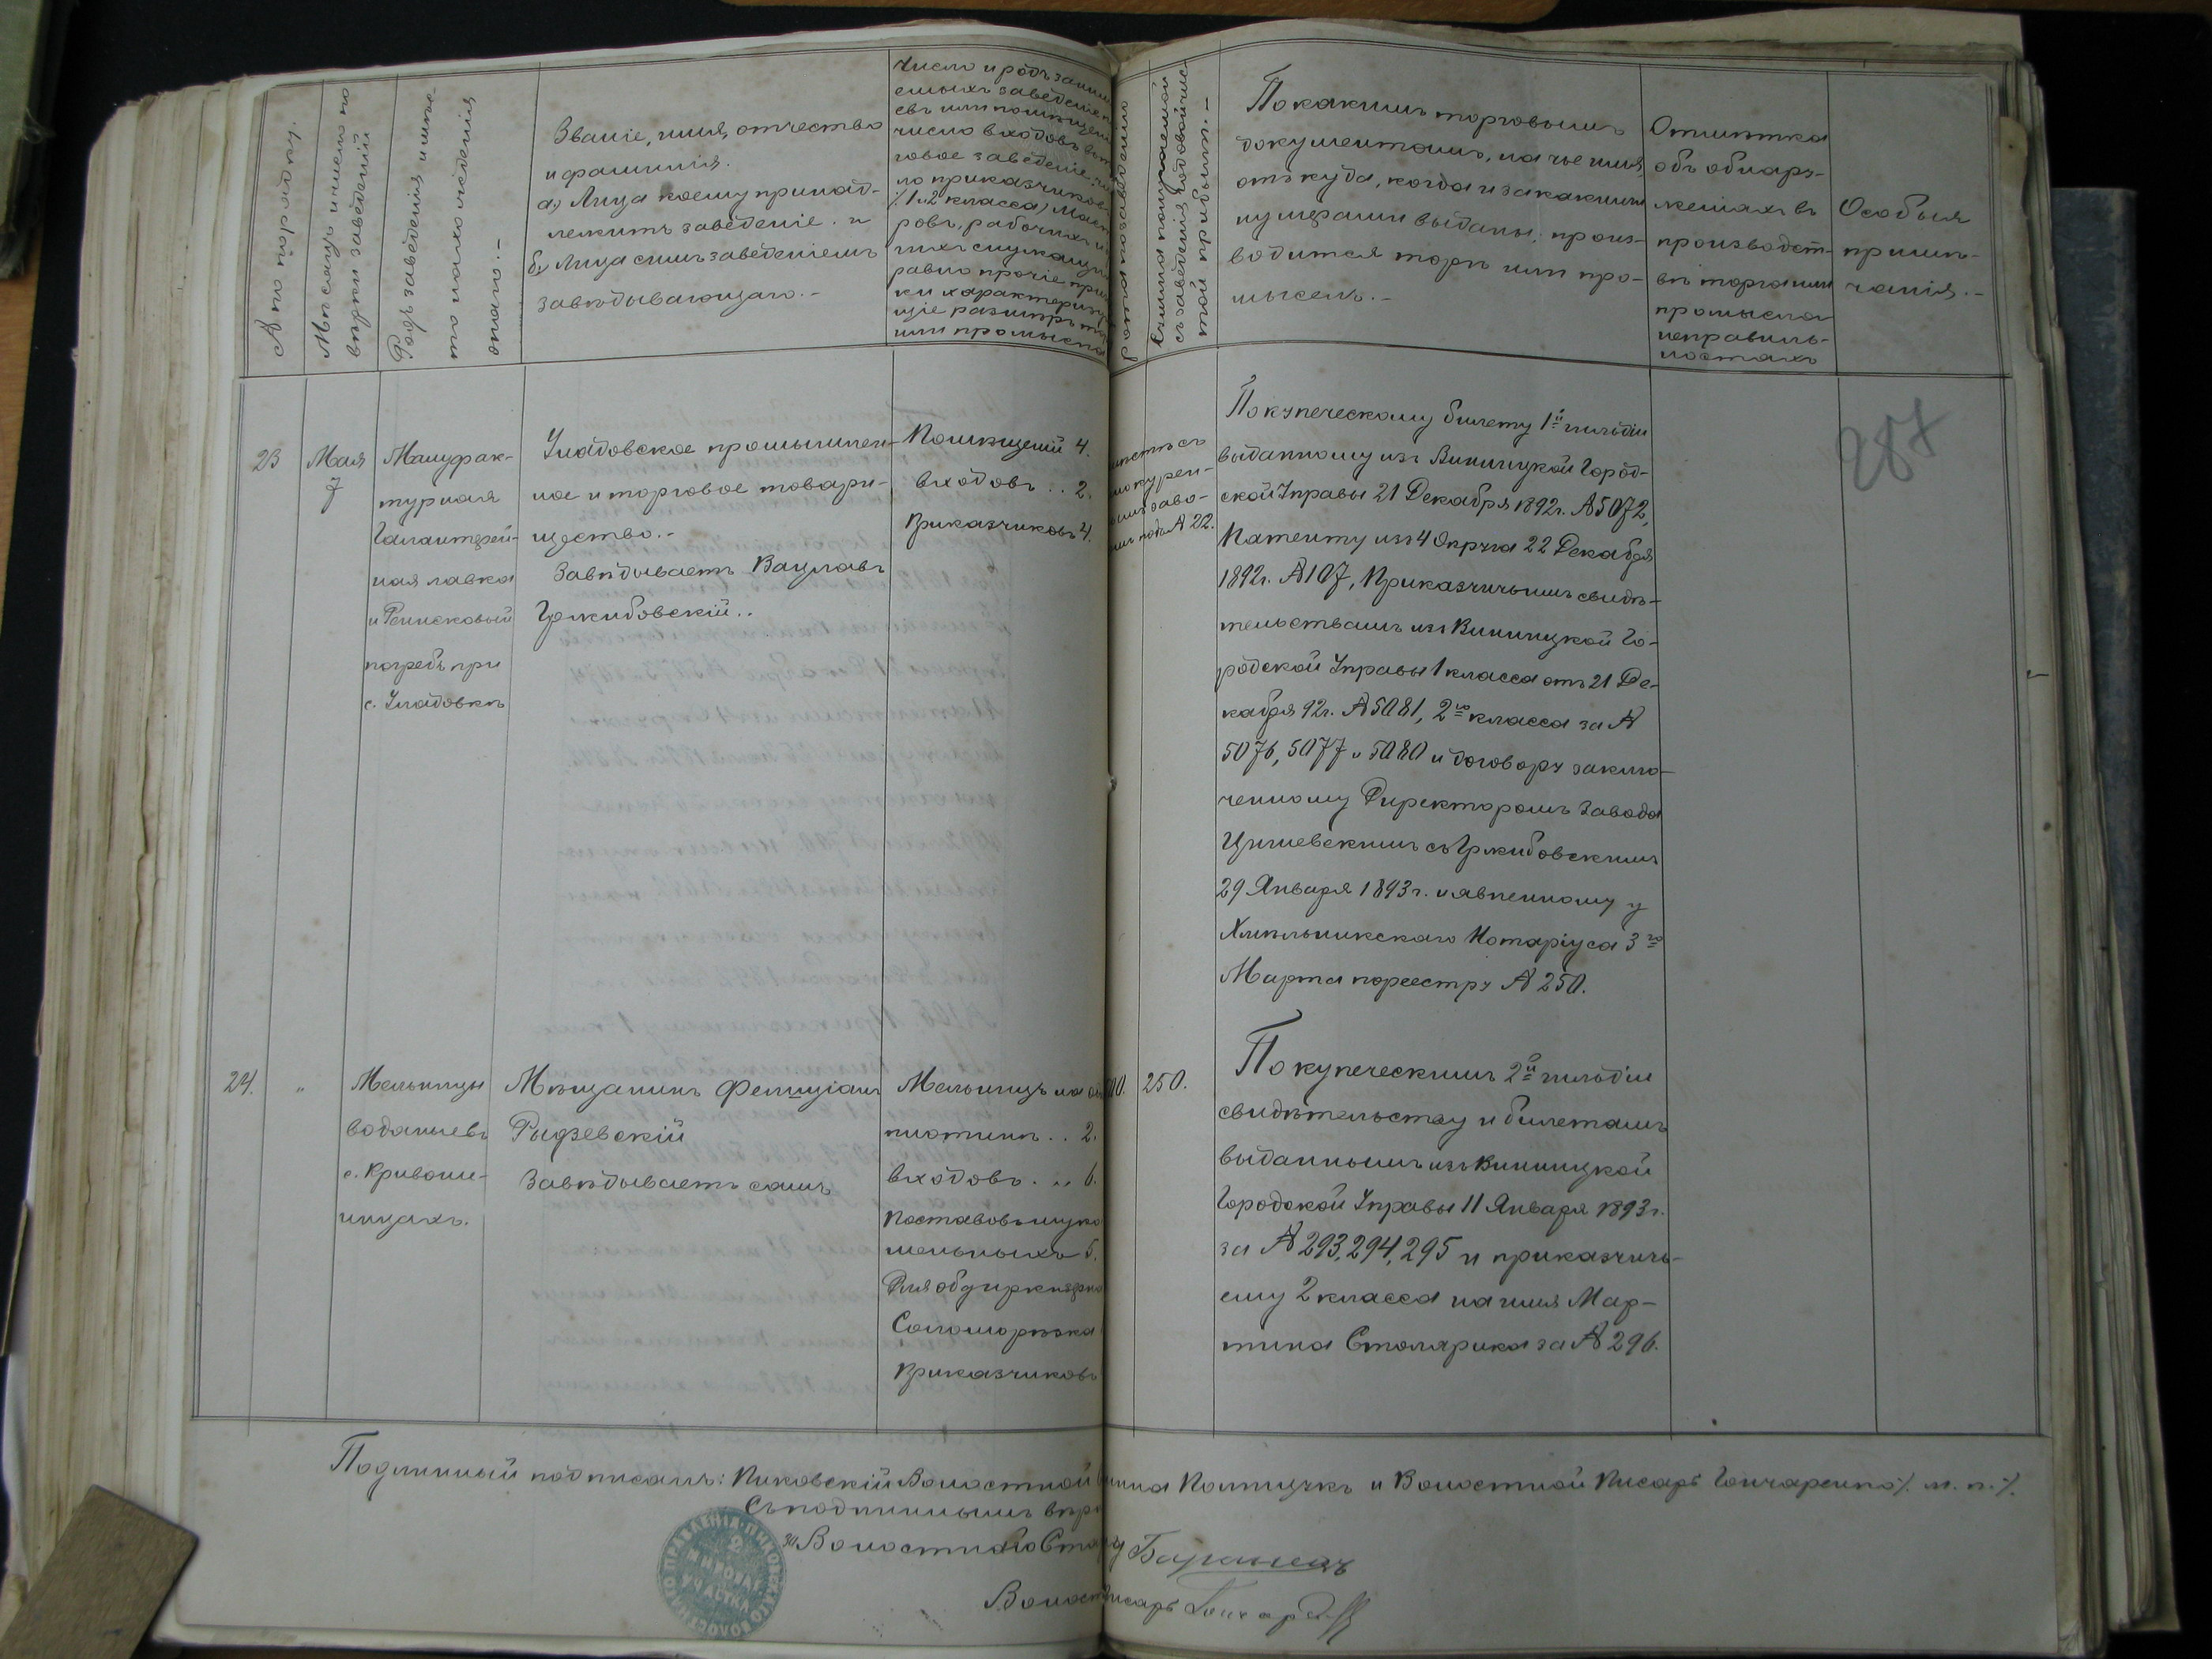 № по порядку.
Мѣсяцъ и число по
вѣрки заведеній
Родъ заведенія и мѣс-
то нахожденія
онаго. –
Званіе, имя, отчество
и фамилія.
а) Лица коему принад-
лежитъ заведеніе. и
б) Лица симъ заведеніемъ
завѣдывающаго. –
Число и родъ
заведенія
число входовъ
говое заведеніе
ло приказчиковъ
1 и 2 класса,
ровъ, рабочихъ
равно прочіе
ки
щіе размѣръ
или промысла
съ заведенія годовой чис-
той прибыли. –
По какимъ торговымъ
документамъ, на чье имя,
откуда, когда и за какими
нумерами выданы, произ-
водится торгъ или про-
мыселъ. –
Отмѣтка
объ обнару-
женіяхъ въ
производст-
вѣ торга или
промысла
неправиль-
ностяхъ
Особыя
примѣ-
чанія. –
287
23
Мая
7
Мануфак-
турная
Галантерей-
ная лавка
и Ренсковый
погребъ при
с. Уладовкѣ
Уладовское промышлен-
ное и торговое товари-
щество. –
Завѣдываетъ Вацлавъ
Гржибовскій..
Помѣщеній 4.
входовъ .. 2.
Приказчиковъ 4.
подъ № 22.
По купеческому билету 1й гильдіи
выданному изъ Винницкой Город-
ской Управы 21 Декабря 1892г. № 5072,
Патенту изъ 4 Округа 22 Декабря
1892г. № 107, Приказчичьимъ свидѣ-
тельствамъ изъ Винницкой Го-
родской Управы 1 класса отъ 21 Де-
кабря 92г. № 5081, 2го класса за №
5076, 5077 и 5080 и договору заклю-
ченному Директоромъ Завода
съ Гржибовскимъ
29 Января 1893г. и явленному у
Хмѣльникскаго Нотаріуса 3го
Марта по реестру № 250.
24.
"
Мельницы
водяныя въ
с. Кривоши-
инцахъ.
Мѣщанинъ Фелиціанъ
Рыдзевскій
Завѣдываетъ самъ
Мельницъ на
плотинѣ .. 2.
входовъ . .. 6.
Поставовъ муко
мельныхъ 5.
Для обдирки зерна
Соломорѣзка
Приказчиковъ
250.
По купеческимъ 2й гильдіи
свидѣтельству и билетамъ
выданнымъ изъ Винницкой
Городской Управы 11 Января 1893г.
за № 293, 294, 295 и приказчичь-
ему 2 класса на имя Мар-
тина Столярика за № 296.
Подлинный подписали: Пиковскій Волостной и Волостной Писарь Гончаренко /. м. п. /.
Съ подлиннымъ
За Волостнаго
Писарь
ПРАВЛЕНІЯ ПИКОВСКАГО ВОЛОСТНАГО
2
МИРОВАГ.
УЧАСТКА